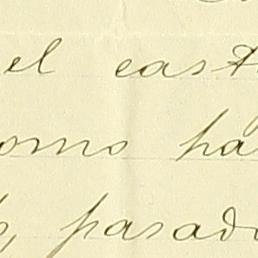 el cast
omo pa
, pasado